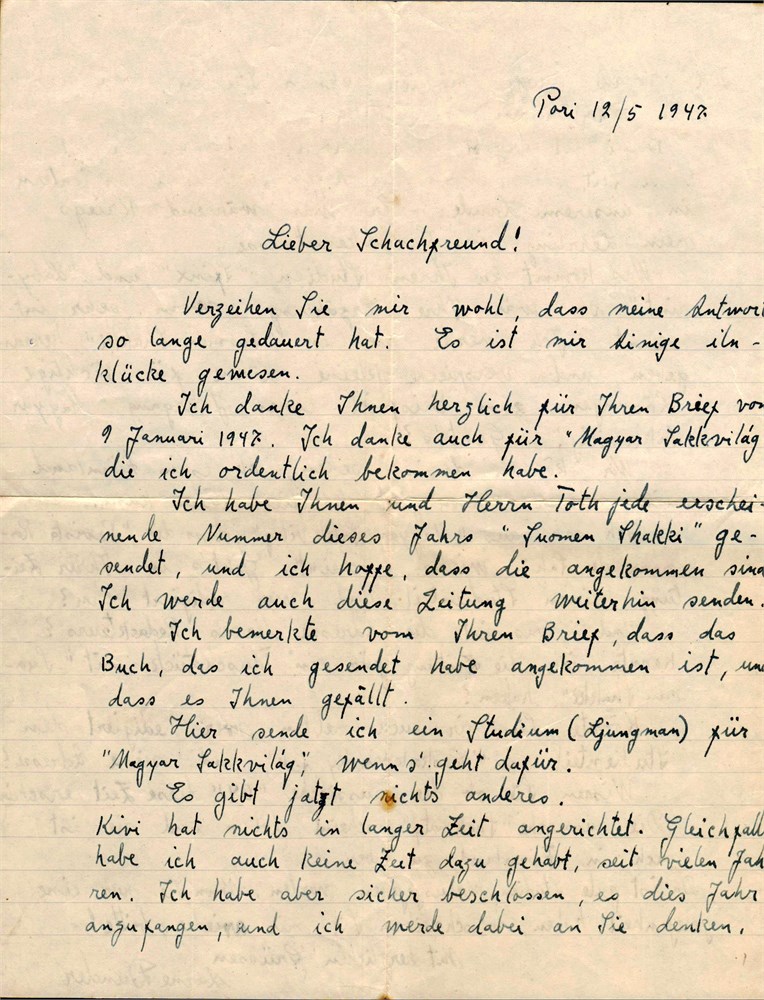 Pori 12/5 1947
Lieber Schachfreund!
Verzeihen Sie mir wohl, dass meine Antwort
so lange gedauert hat. Es ist mir einige Un-
klücke gewesen.
Ich danke Ihnen herzlich für Ihren Brief von
9 Januari 1947. Ich danke auch für "Magyar Sakkvilág
die ich ordentlich bekommen habe.
Ich habe Ihnen und Herrn Toth jede erschei-
nende Nummer dieses Jahrs "Suomen Shakki" ge-
sendet, und ich hoppe, dass die angekommen sind
Ich werde auch diese Zeitung weiterhin senden.
Ich bemerkte vom Ihren Brief, dass das
Buch, das ich gesendet habe angekommen ist, und
dass es Ihnen gefällt.
Hier sende ich ein Studium (Ljungman) für
"Magyar Sakkvilág", wenn s' geht dafür.
Es gibt jatzt nichts anderes.
Kivi hat nichts in langer Zeit angerichtet. Gleichfall
habe ich auch keine Zeit dazu gehabt, seit vielen Jah
ren. Ich habe aber sicher beschlossen, es dies Jahr
anzufangen, und ich werde dabei an Sie denken.